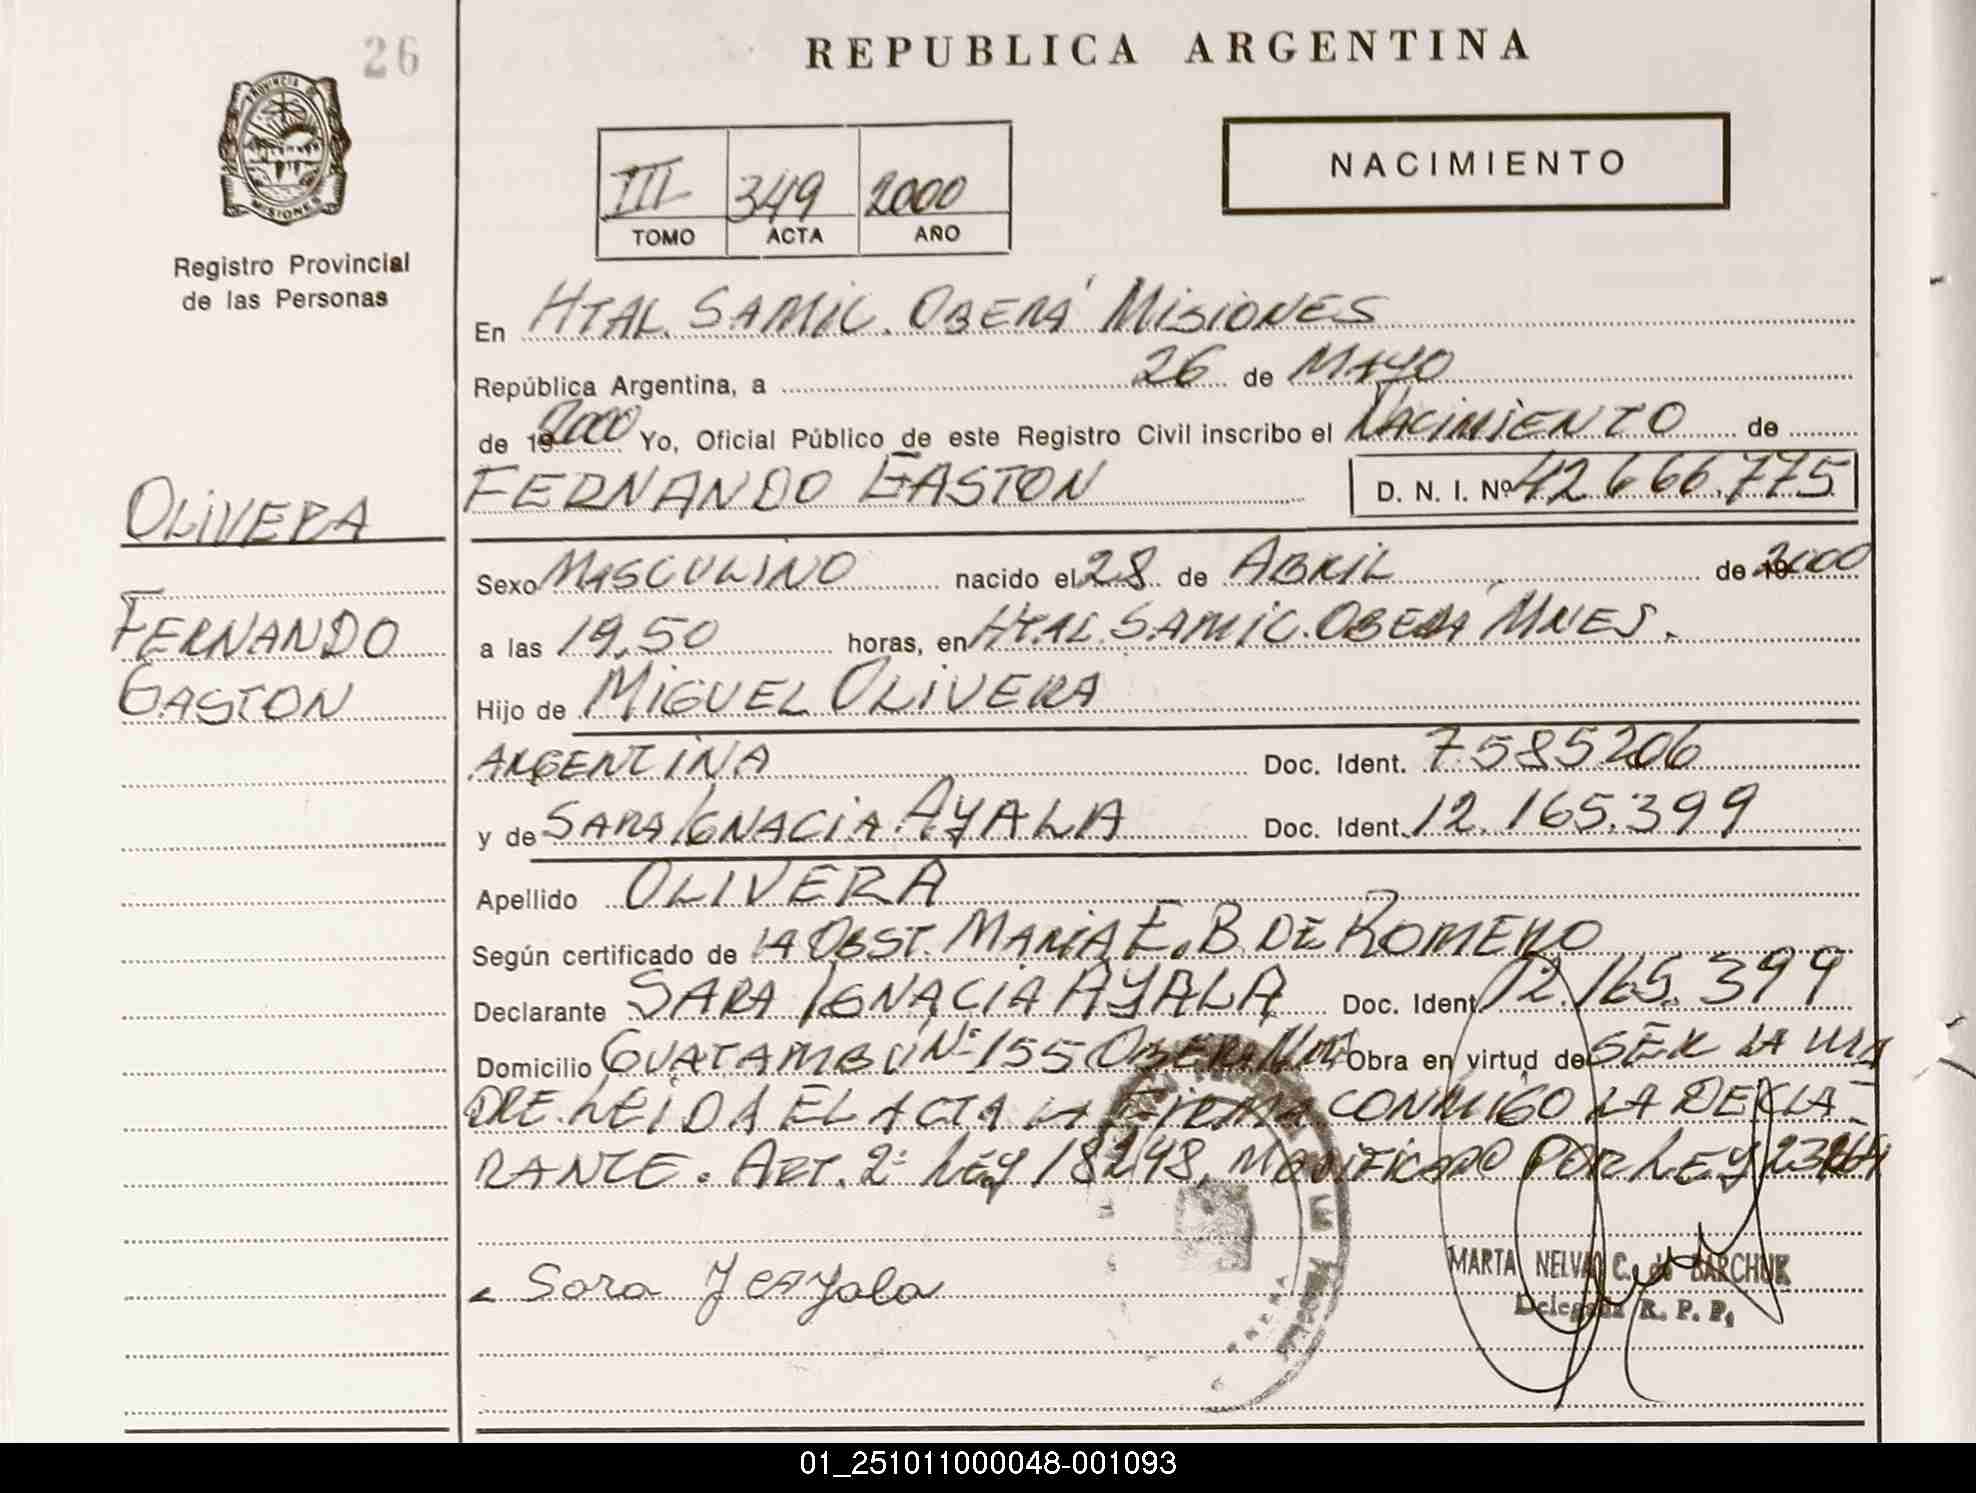 26
REPUBLICA ARGENTINA
PROVINCIA DE
MISIONES
Registro Provincial
de las Personas
III 349 2000
TOMO ACTA AÑO
NACIMIENTO
En HTAL. SAMIC. OBERÁ MISIONES
República Argentina, a 26 de MAYO
de 19 2000 Yo, Oficial Público de este Registro Civil inscribo el NACIMIENTO de
FERNANDO GASTON D. N. I. Nº 42.666.775
OLIVERA
FERNANDO
GASTON
Sexo MASCULINO nacido el 28 de ABRIL de 19 2000
a las 19,50 horas, en HTAL. SAMIC. OBERÁ MNES.
Hijo de MIGUEL OLIVERA
ARGENTINA Doc. Ident. 7585206
y de SARA IGNACIA AYALA Doc. Ident. 12.165.399
Apellido OLIVERA
Según certificado de LA OBST. MARIA E. B. DE ROMERO
Declarante SARA IGNACIA AYALA Doc. Ident. 12.165.399
Domicilio GUATAMBU Nº 155 OBERA Obra en virtud de SER LA MA
DRE. LEIDA EL ACTA LA FIRMA CONMIGO LA DECLA-
RANTE. ART. 2º LEY 18248, MODIFICADO POR LEY
Sara Y Ayala
MARTA NELVA C. de BARCHUK
Delegada R. P. P.
01_251011000048-001093